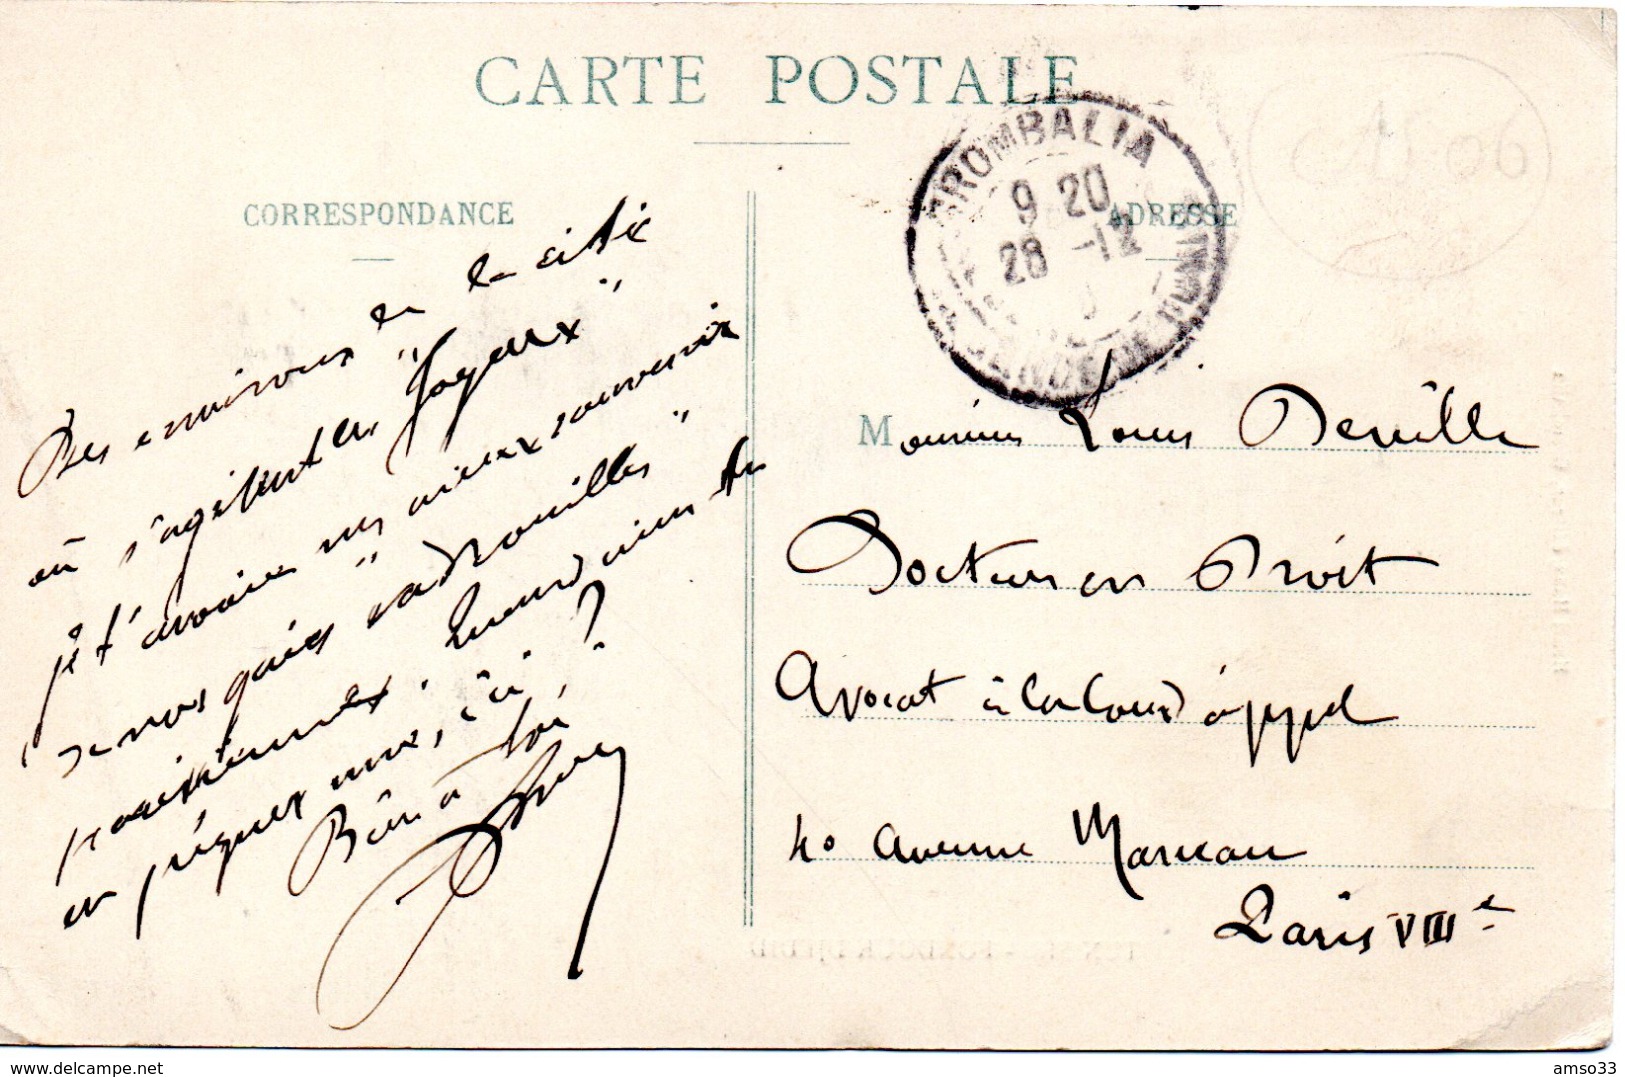 CARTE POSTALE
CORRESPONDANCE
ADRESSE
GROMBALIA
9 20
28 -12
Des environs de la cité
où s'agitent les "Joyeux"
je t'envoie mes vieux souvenir
de nos gaies "vadrouilles"
parisiennes. Quand viens tu
en piquer une, ici?
Bien à toi
Monsieur Louis Deville
Docteur en Droit
Avocat à la Cour d'appel
40 Avenue Marceau
Paris VIIIe
TUNISIE - FONDOUK DJEDID
delcampe.net
amso33